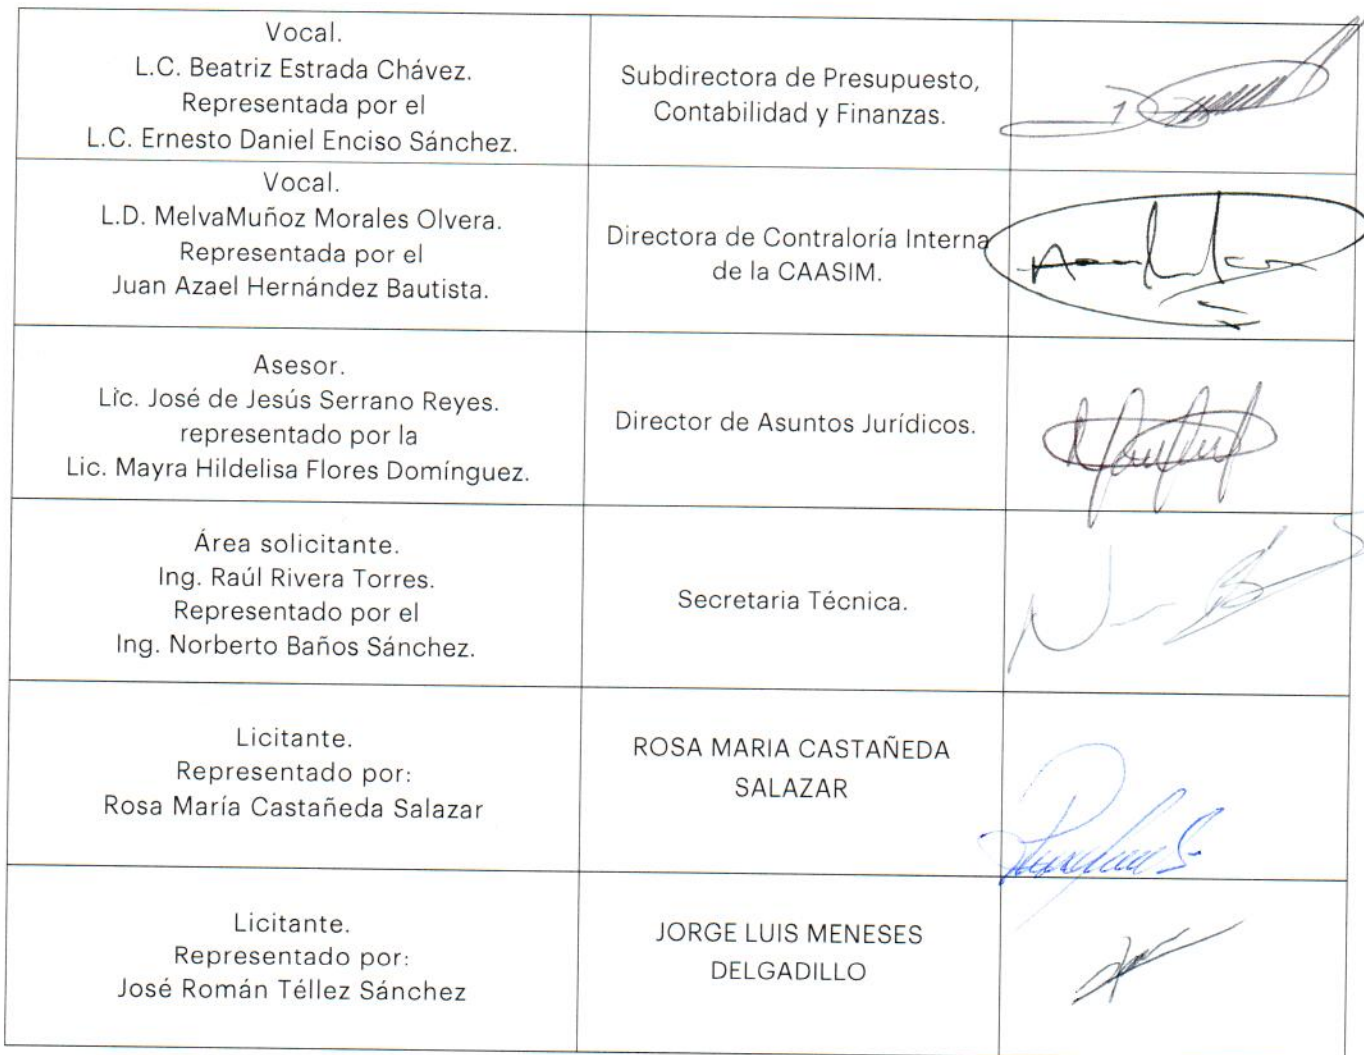 Vocal.
L.C. Beatriz Estrada Chávez.
Representada por el
L.C. Ernesto Daniel Enciso Sánchez.
Subdirectora de Presupuesto,
Contabilidad y Finanzas.
Vocal.
L.D. MelvaMuñoz Morales Olvera.
Representada por el
Juan Azael Hernández Bautista.
Directora de Contraloría Interna
de la CAASIM.
Asesor.
Lic. José de Jesús Serrano Reyes.
representado por la
Lic. Mayra Hildelisa Flores Domínguez.
Director de Asuntos Jurídicos.
Área solicitante.
Ing. Raúl Rivera Torres.
Representado por el
Ing. Norberto Baños Sánchez.
Secretaria Técnica.
Licitante.
Representado por:
Rosa María Castañeda Salazar
ROSA MARIA CASTAÑEDA
SALAZAR
Licitante.
Representado por:
José Román Téllez Sánchez
JORGE LUIS MENESES
DELGADILLO